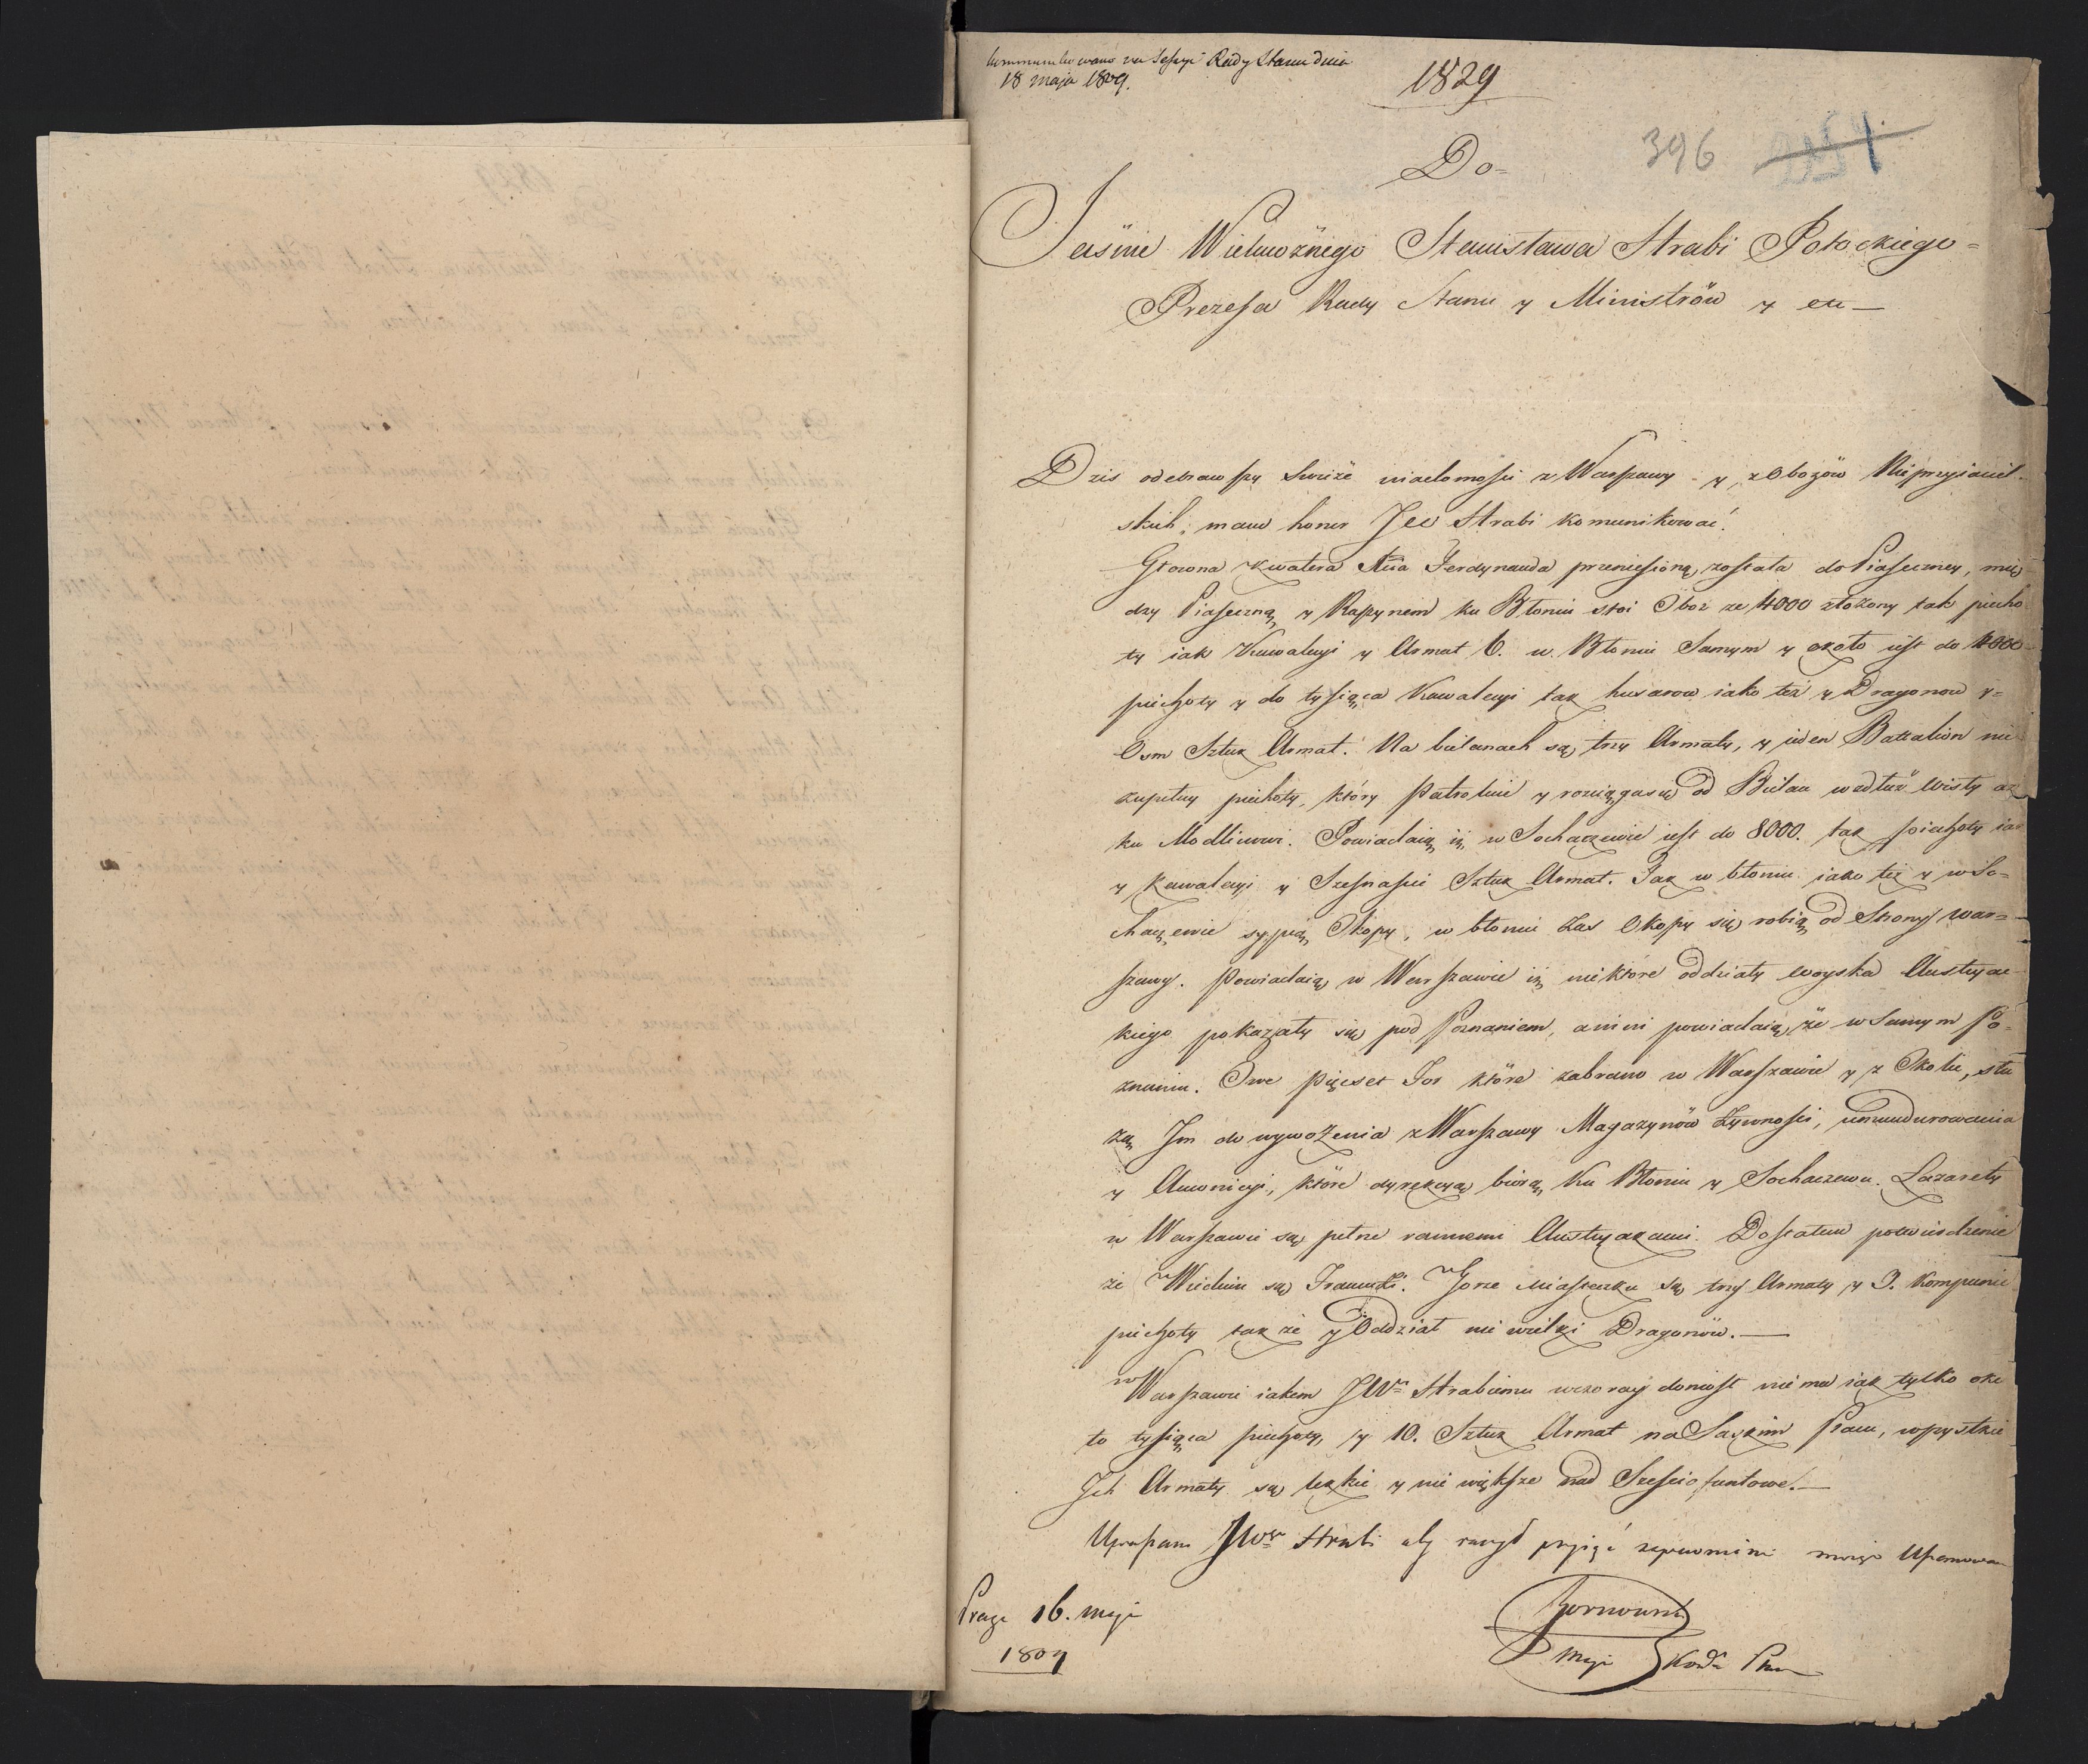 kommunikowano na Sessyi Rady Stanu dnia
18 maja 1809.
1829
396
Do=
Jaśnie Wielmożnego Stanisława Hrabi Potockiego=
Prezesa Rady Stanu y Ministrów y
Dzis odebrawszy swieże wiadomosci z Warszawy y z Obozów Nieprzyiaciel-
skich, mam honor Jeo Hrabi komunikować.
Głowna Kwatera Ferdynanda przeniesioną została do Piaseczney, mię
dzy Piaseczną y Raszynem ku Błoniu stoi Oboz ze 4000 złożony tak piecho
ty iak Kawaleryi y Armat 6. w Błoniu Samym y około iest do 4000
piechoty y do tysiąca Kawaleryi tak husarow iako też y Dragonow y=
Osm Sztuk Armat. Na bielanach są trzy Armaty, y ieden Battalion nie
zupełny piechoty, który Patroluie y rozciąga się od Bielan wzdłuż Wisły aż
ku Modlinowi. Powiadaią iż w Sochaczewie iest do 8000. tak piechoty iak
y Kawaleryi y Szesnascie Sztuk Armat. Tak w błoniu iako też y w So=
chaczewie sypią Okopy, w błoniu zas Okopy się robią od Strony War=
szawy. Powiadaią w Warszawie iż niektóre oddziały woyska Austryac
kiego pokazały się pod Poznaniem, a inni powiadaią, że w Samym Po=
znaniu. Owe pięcset For które zabrano w Warszawie y z Okolic, słu
żą Im do wywożenia z Warszawy Magazynów Żywnosci, umundurowania
y Amonicyi, które dyrekcyą biorą ku Błoniu y Sochaczewu. Lazarety
w Warszawie są pełne rannemi Austryakami. Dostałem potwierdzenie
że w Wiedniu są Francuzi. w Gorze Miasteczku są trzy Armaty y 2. Kompanie
piechoty tak że y Oddział nie wielki Dragonów.—
w Warszawie iakem JWu Hrabiemu wczoray doniosł nie ma iak tylko oko
ło tysiąca piechoty, y 10. Sztuk Armat na Saskim Placu, wszystkie
Ich Armaty są lekkie y nie większe nad Szesciofuntowe.—
Upraszam JWgo Hrabi aby raczył przyiąć zapewnienie moiego Uszanowan
Praga 16. maja
1809
Hornowski